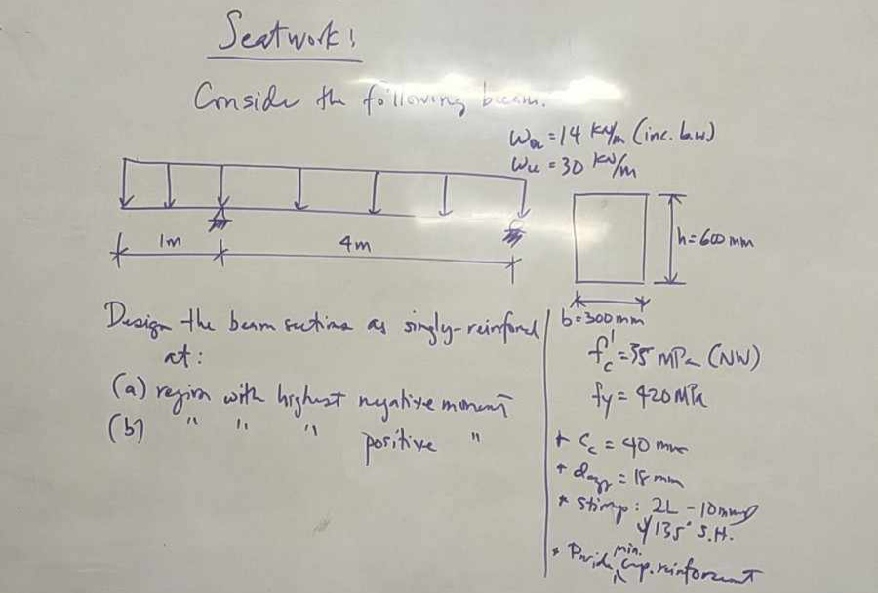 Seatwork!
Consider the following beam.
Wa = 14 kN/m (inc. b.w)
Wu = 30 kN/m
1m
4m
h=600 mm
b=300mm
Design the beam sections as singly-reinforced
at:
(a) region with highest negative moment
(b) " " " positive "
f'c = 35 MPa (NW)
fy = 420 MPa
* Cc = 40 mm
* dagg = 18 mm
* stirrup: 2L - 10mmφ
w/ 135° S.H.
* Provide min. comp. reinforcement